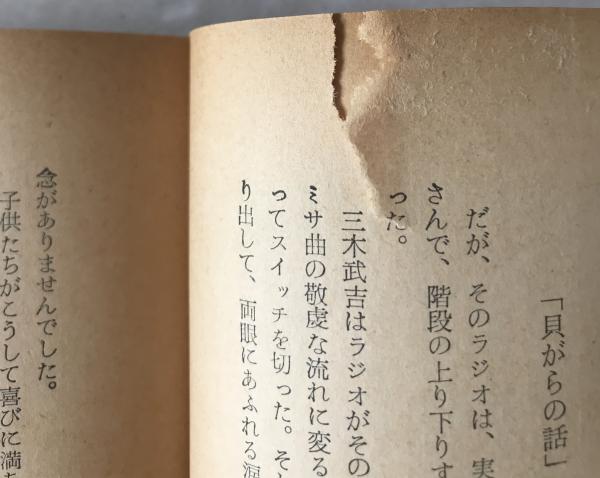 「貝がらの話」
だが、そのラジオは、実
さんで、階段の上り下りす
った。
三木武吉はラジオがその
ミサ曲の敬虔な流れに変る
ってスイッチを切った。そ
り出して、両眼にあふれる涙
念がありませんでした。
子供たちがこうして喜びに満